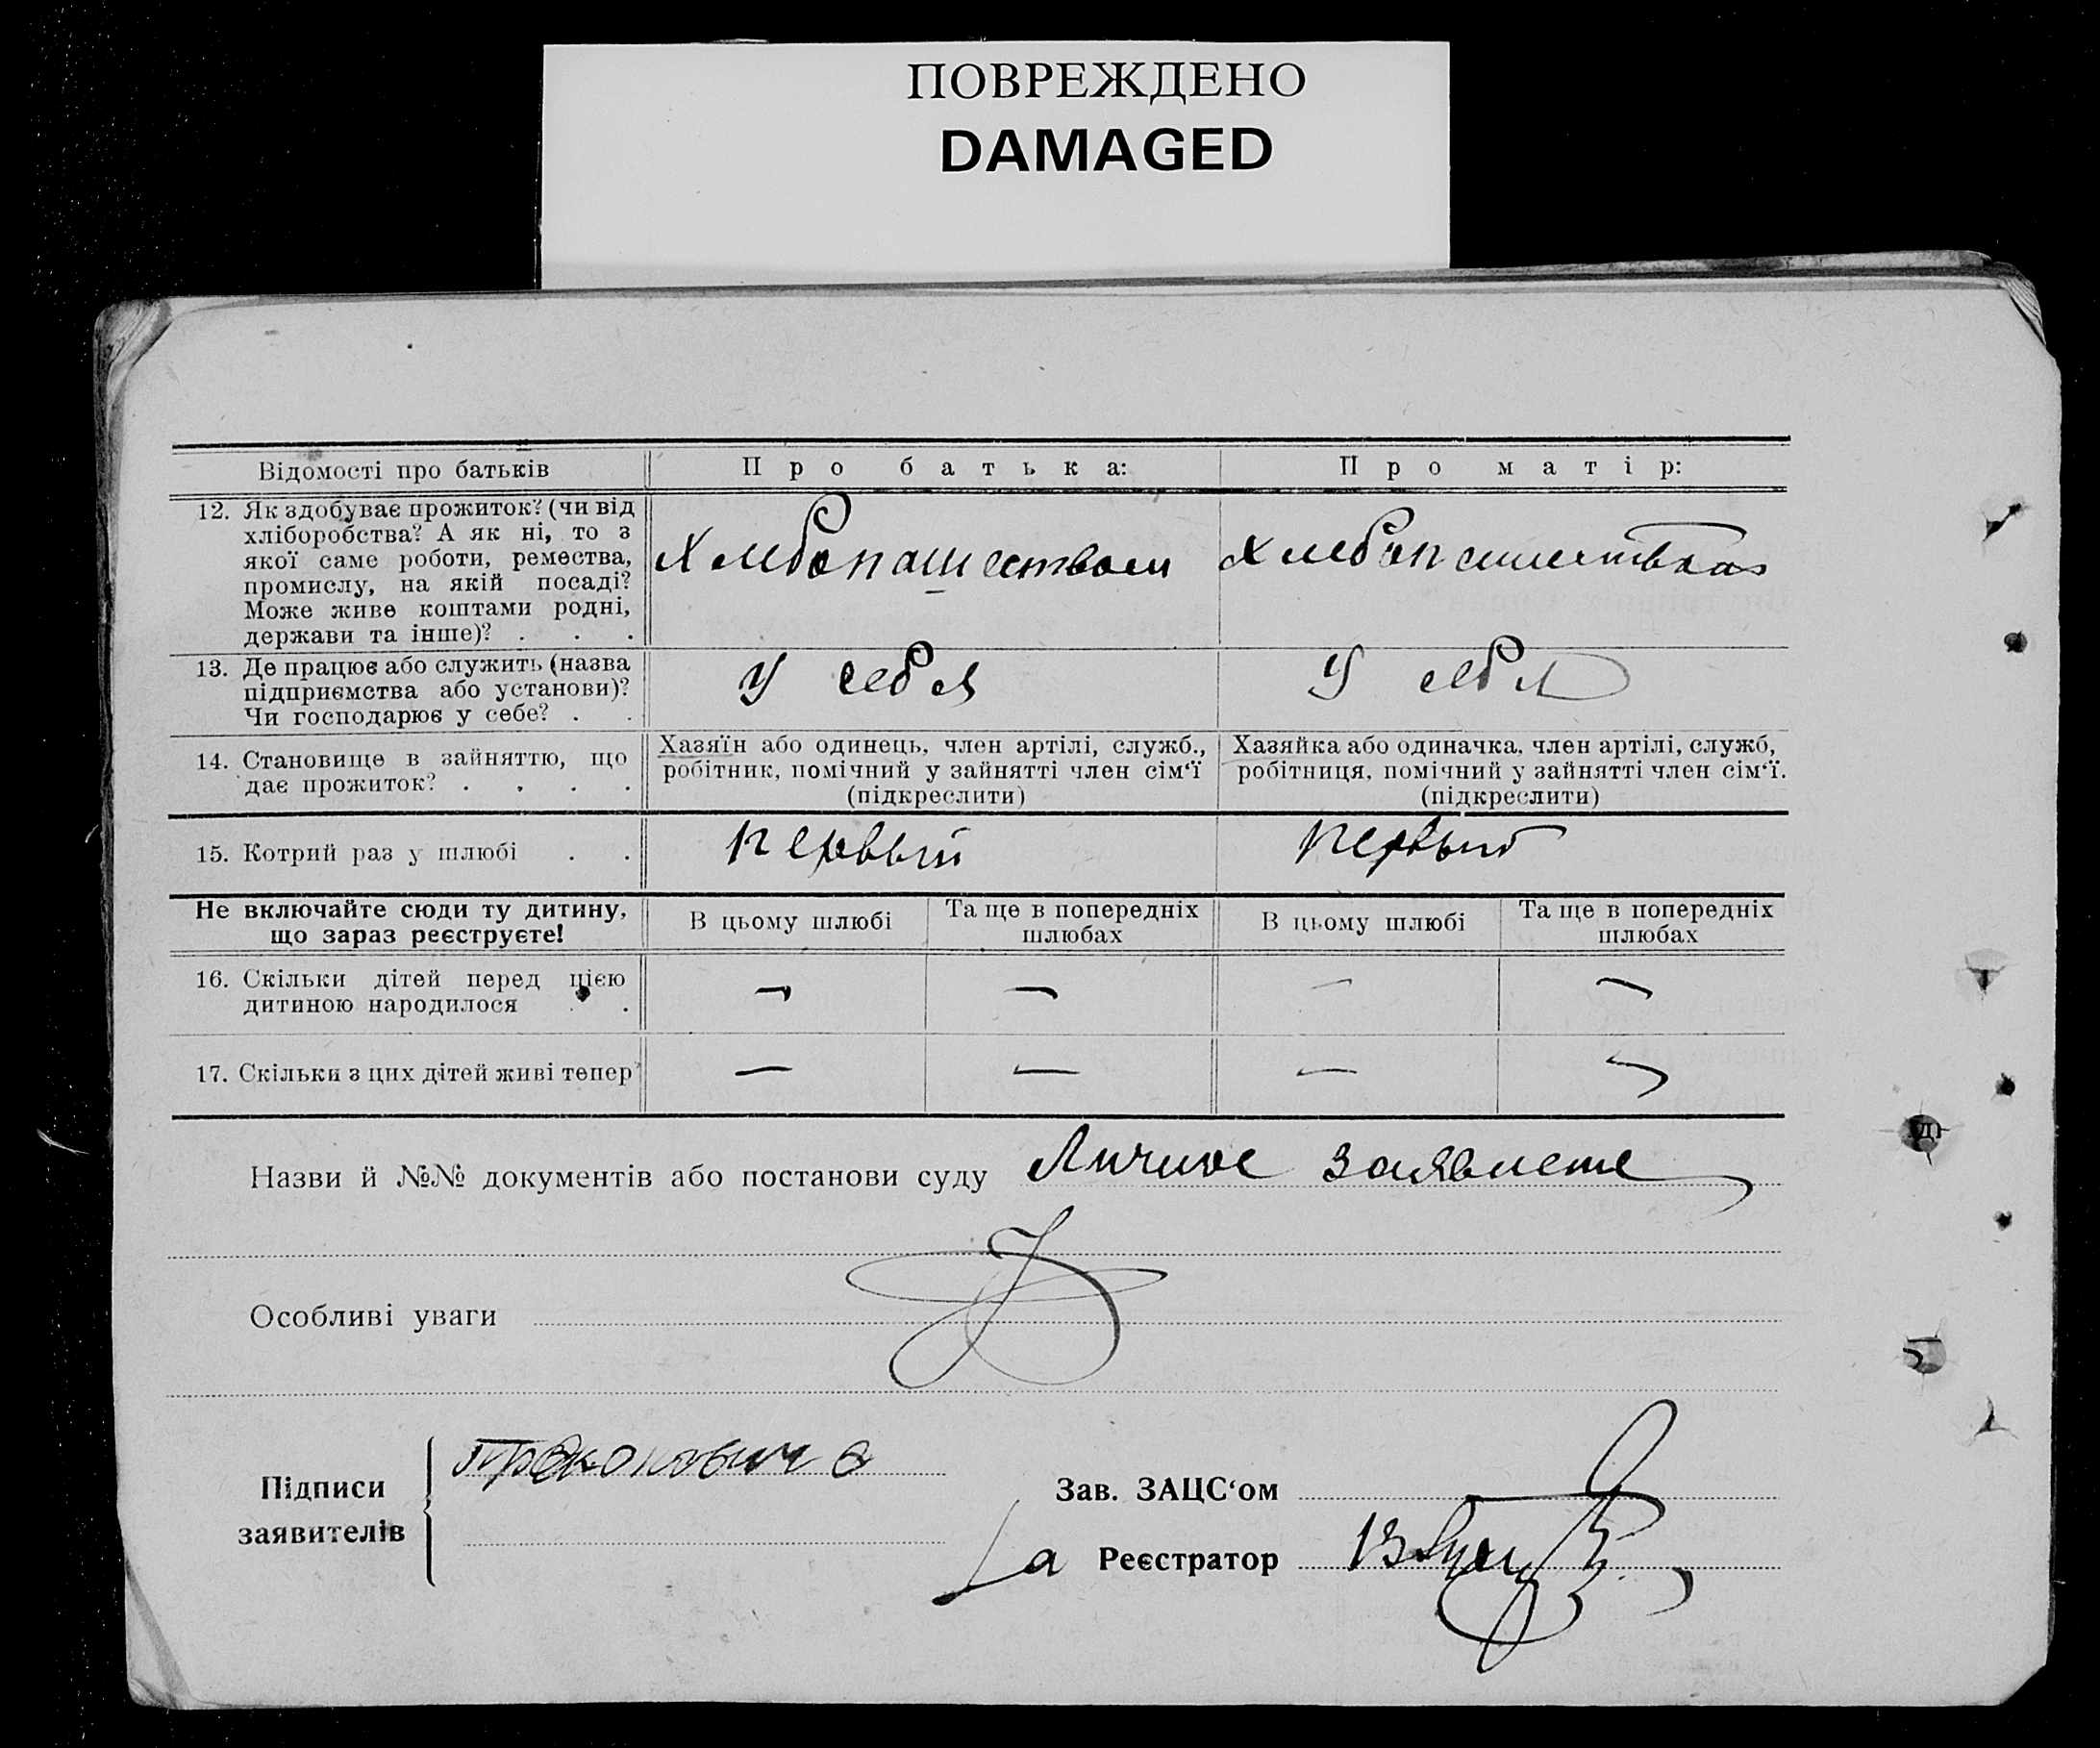 ПОВРЕЖДЕНО
DAMAGED
Відомості про батьків
Про батька:
Про матір:
12. Як здобуває прожиток? (чи від
хліборобства? А як ні, то з
якої саме роботи, ремества,
промислу, на якій посаді?
Може живе коштами родні,
держави та інше)? . . .
Хлебопашеством
Хлебопашеством
13. Де працює або служить (назва
підприємства або установи)?
Чи господарює у себе? . .
У себя
У себя
14. Становище в зайняттю, що
дає прожиток? . . . .
Хазяїн або одинець, член артілі, служб.,
робітник, помічний у зайнятті член сім‘ї
(підкреслити)
Хазяйка або одиначка, член артілі, служб,
робітниця, помічний у зайнятті член сім‘ї.
(підкреслити)
15. Котрий раз у шлюбі . .
первый
первый
Не включайте сюди ту дитину,
що зараз реєструєте!
В цьому шлюбі
Та ще в попередніх
шлюбах
В цьому шлюбі
Та ще в попередніх
шлюбах
16. Скільки дітей перед цією
дитиною народилося . .
— — — —
17. Скільки з цих дітей живі тепер
— — — —
Назви й №№ документів або постанови суду Личное заявление
Особливі уваги
Підписи
заявителів
Зав. ЗАЦС‘ом
Реєстратор